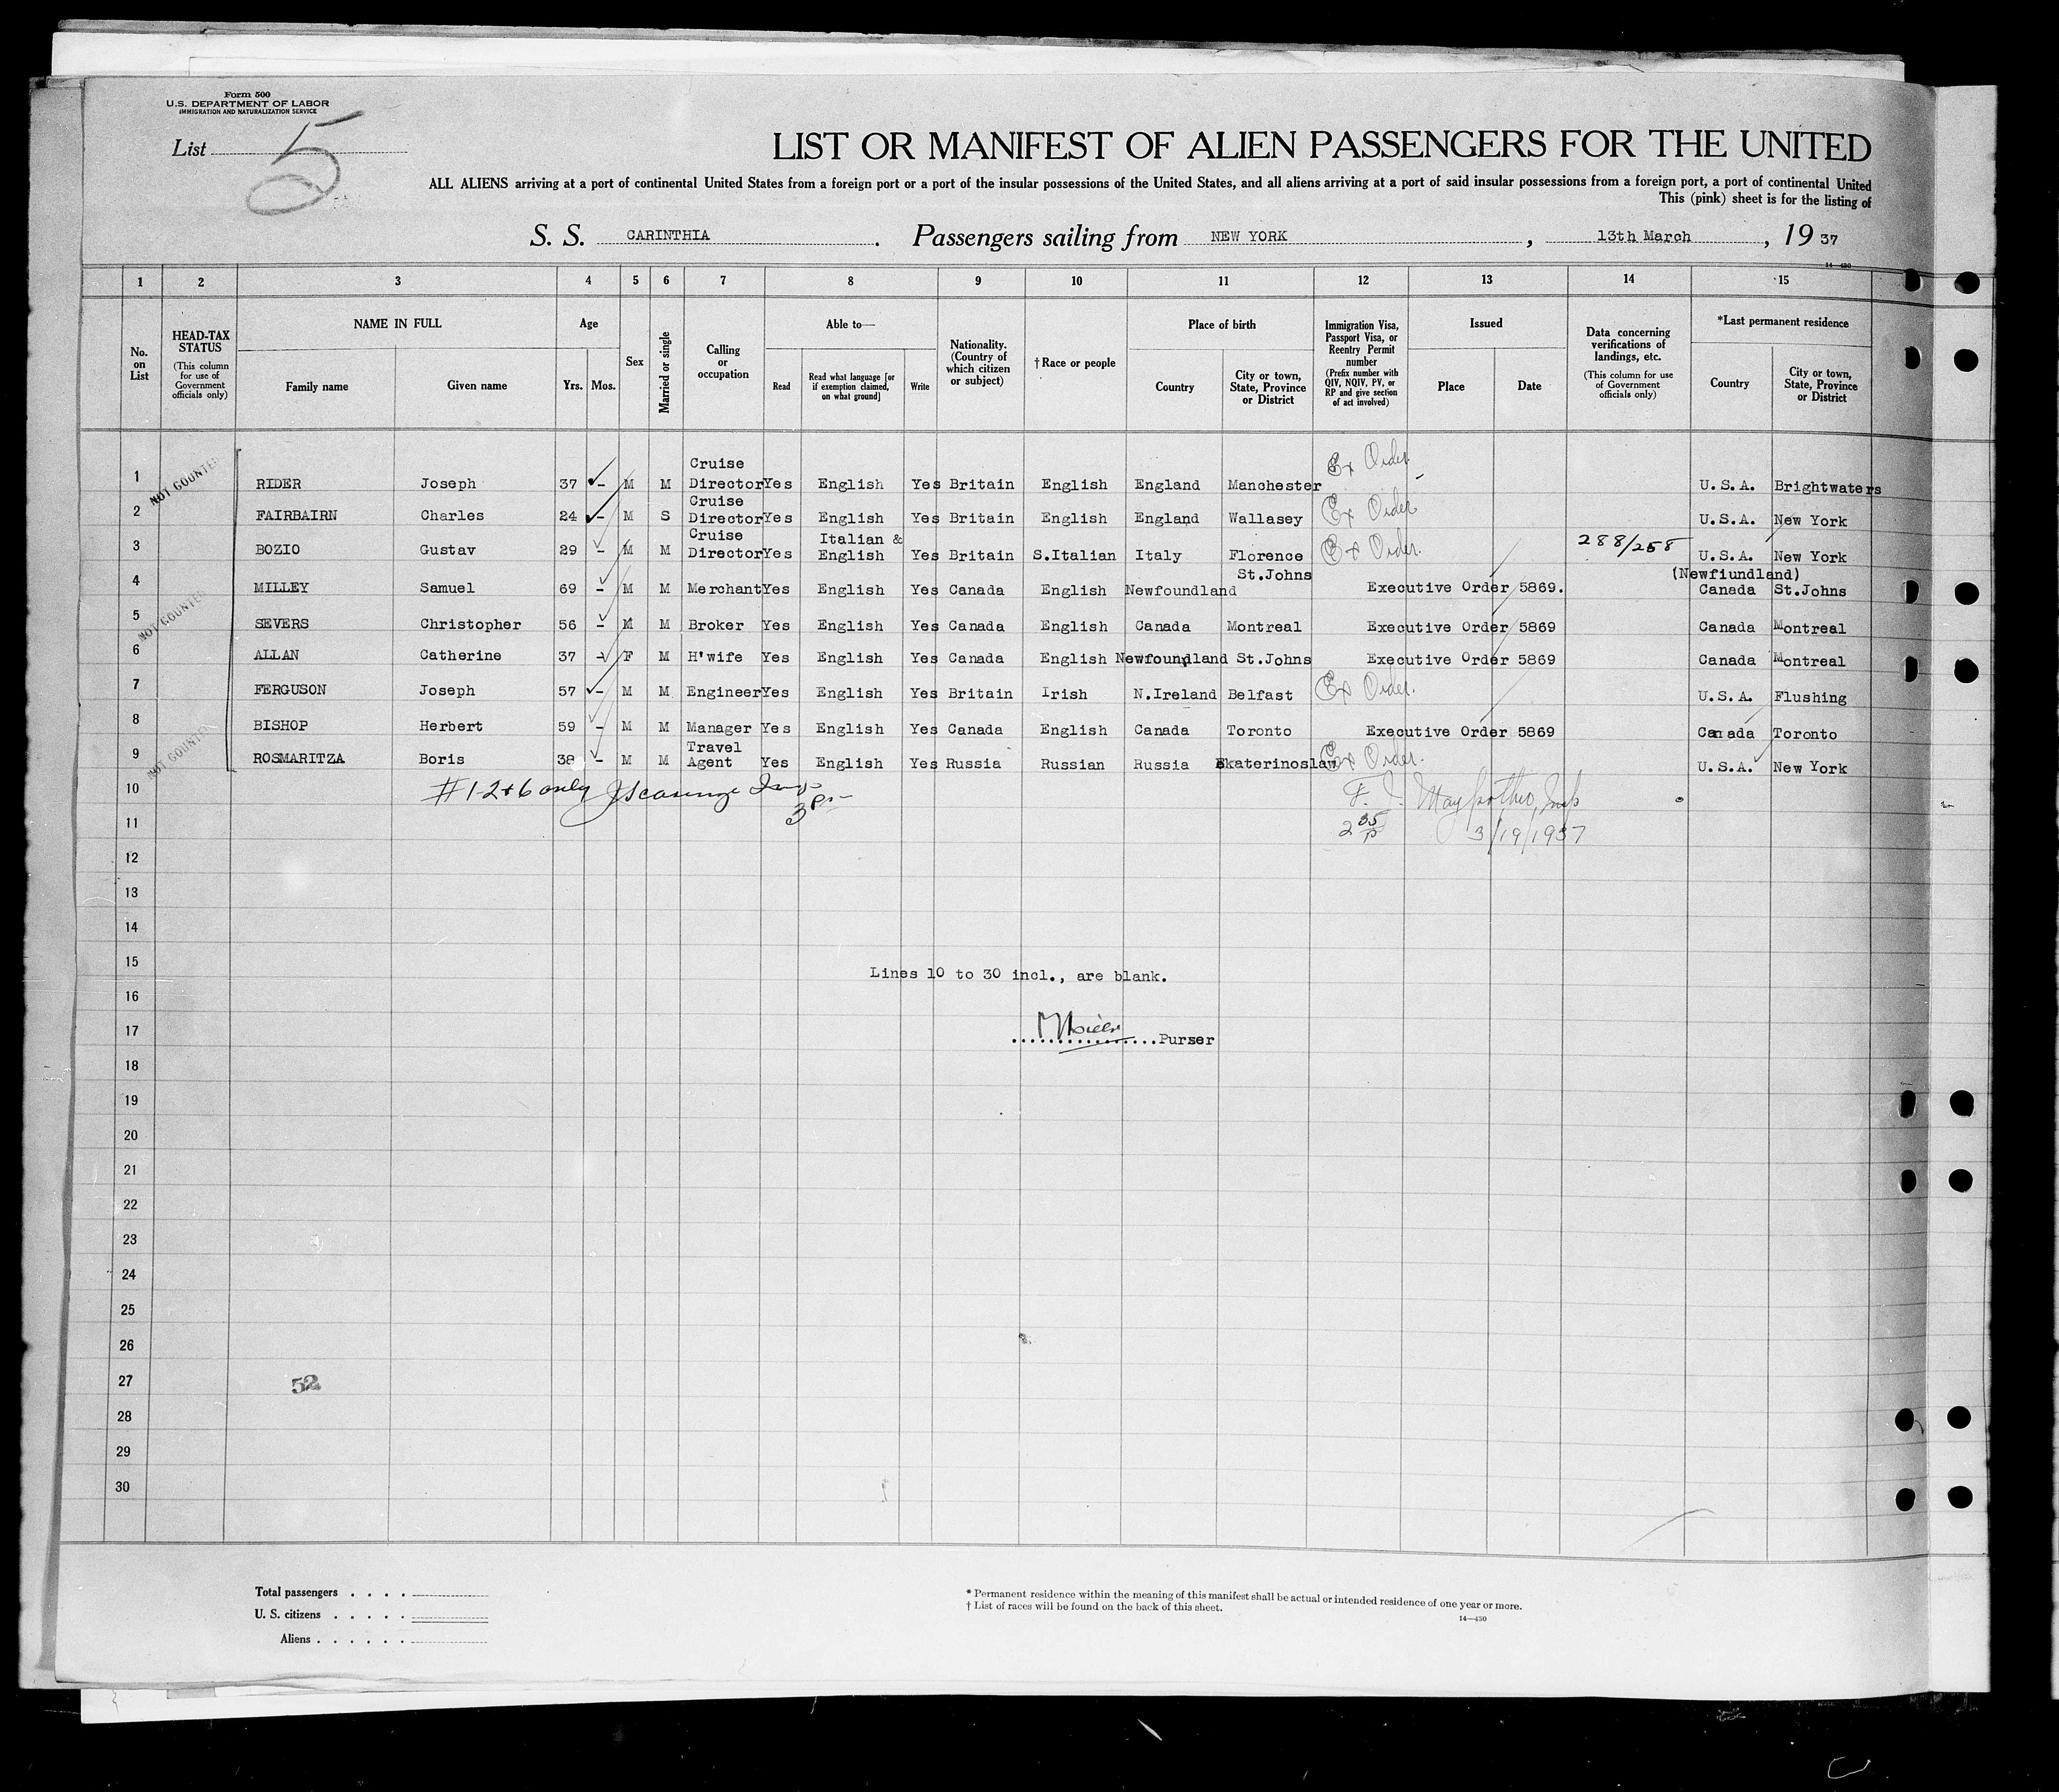 Form 500
U.S. DEPARTMENT OF LABOR
IMMIGRATION AND NATURALIZATION SERVICE
List 5
LIST OR MANIFEST OF ALIEN PASSENGERS FOR THE UNITED
ALL ALIENS arriving at a port of continental United States from a foreign port or a port of the insular possessions of the United States, and all aliens arriving at a port of said insular possessions from a foreign port, a port of continental United
This (pink) sheet is for the listing of
S. S. CARINTHIA. Passengers sailing from NEW YORK, 13th March, 19 37
14-430
1 2 3 4 5 6 7 8 9 10 11 12 13 14 15
No. on List
HEAD-TAX STATUS (This column for use of Government officials only)
NAME IN FULL Family name Given name
Age Yrs. Mos.
Sex
Married or single
Calling or occupation
Able to— Read Read what language [or if exemption claimed, on what ground] Write
Nationality. (Country of which citizen or subject)
† Race or people
Place of birth Country City or town, State, Province or District
Immigration Visa, Passport Visa, or Reentry Permit number (Prefix number with QIV, NQIV, PV, or RP and give section of act involved)
Issued Place Date
Data concerning verifications of landings, etc. (This column for use of Government officials only)
*Last permanent residence Country City or town, State, Province or District
NOT COUNTED
1 RIDER Joseph 37 - M M Cruise Director Yes English Yes Britain English England Manchester Ex Order U.S.A. Brightwaters
2 FAIRBAIRN Charles 24 - M S Cruise Director Yes English Yes Britain English England Wallasey Ex Order U.S.A. New York
3 BOZIO Gustav 29 - M M Cruise Director Yes Italian & English Yes Britain S.Italian Italy Florence Ex Order. 288/258 U.S.A. New York
4 MILLEY Samuel 69 - M M Merchant Yes English Yes Canada English Newfoundland St.Johns Executive Order 5869. (Newfiundland) Canada St.Johns
NOT COUNTED
5 SEVERS Christopher 56 - M M Broker Yes English Yes Canada English Canada Montreal Executive Order 5869 Canada Montreal
6 ALLAN Catherine 37 - F M H'wife Yes English Yes Canada English Newfoundland St.Johns Executive Order 5869 Canada Montreal
7 FERGUSON Joseph 57 - M M Engineer Yes English Yes Britain Irish N.Ireland Belfast Ex Order. U.S.A. Flushing
8 BISHOP Herbert 59 - M M Manager Yes English Yes Canada English Canada Toronto Executive Order 5869 Canada Toronto
NOT COUNTED
9 ROSMARITZA Boris 38 - M M Travel Agent Yes English Yes Russia Russian Russia Ekaterinoslaw Ex Order. U.S.A. New York
10 #1-2+6 only
11 2 35 P 3/19/1937
12
13
14
15 Lines 10 to 30 incl., are blank.
16
17 ................Purser
18
19
20
21
22
23
24
25
26
27 52
28
29
30
Total passengers . . . .
U. S. citizens . . . . .
Aliens . . . . . .
* Permanent residence within the meaning of this manifest shall be actual or intended residence of one year or more.
† List of races will be found on the back of this sheet.
14—430